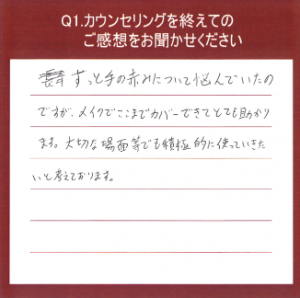 Q1.カウンセリングを終えての
ご感想をお聞かせください
ずっと手の赤みについて悩んでいたの
ですが、メイクでここまでカバーできてとても助かり
ます。大切な場面等でも積極的に使っていきた
いと考えております。